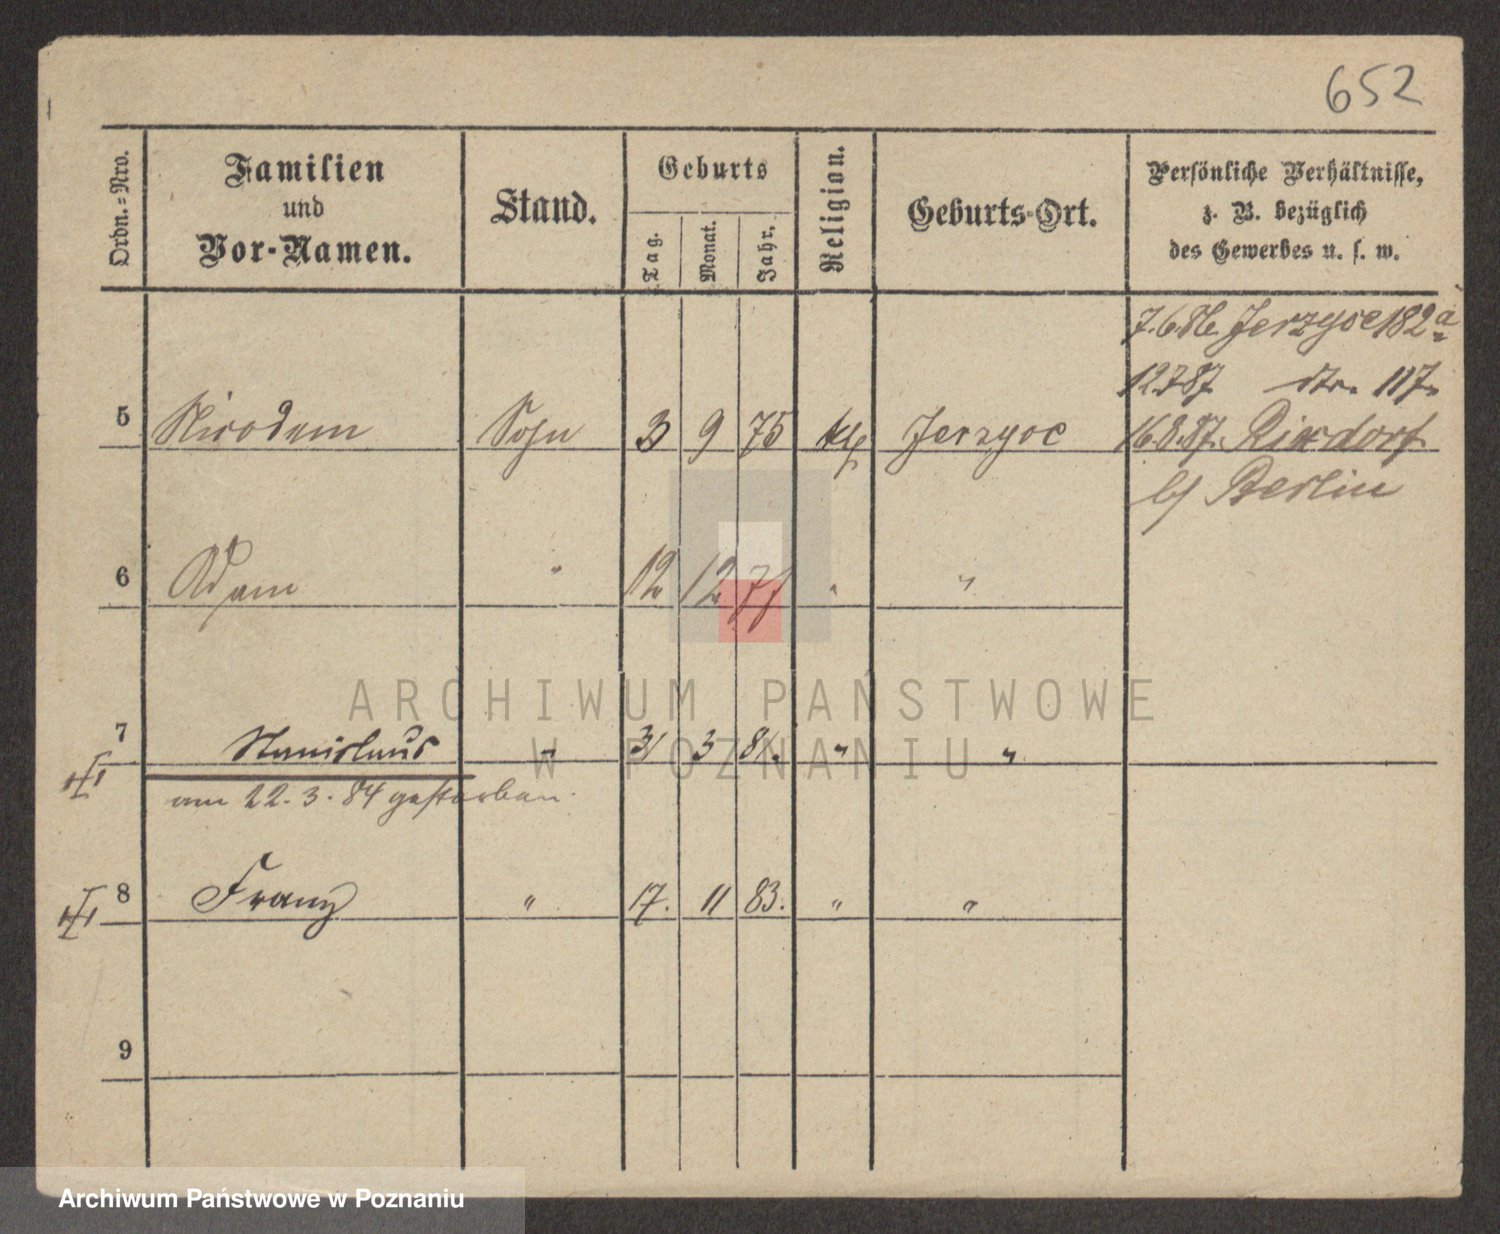 652
Ordn.-Nro.
Familien
und
Vor-Namen.
Stand.
Geburts
Tag.
Monat.
Jahr.
Religion.
Geburts-Ort.
Persönliche Verhältnisse,
z. B. bezüglich
des Gewerbes u. s. w.
7.6.86. Jerzyce 182a
12.7.87 dto. 117.
5 Nicodem Sohn 3 9 75 kth Jerzyce 16.8.87. Rixdorf
b/ Berlin
6 Adam " 12 12 77 " "
7 Stanislaus " 31 3 81. " "
am 22.3.84 gestorben.
8 Franz " 17. 11 83. " "
9
ARCHIWUM PAŃSTWOWE
W POZNANIU
Archiwum Państwowe w Poznaniu